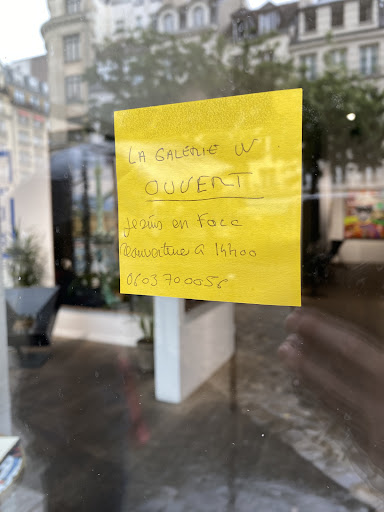 LA GALERIE W
OUVERT
Je suis en Face
Reouverture a 14h00
0603700056